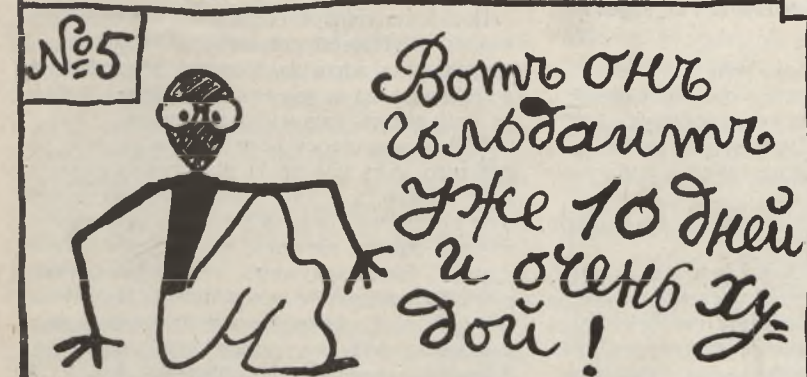 №5
Вотъ онъ
голодаитъ
уже 10 дней
и очень ху=
дой!